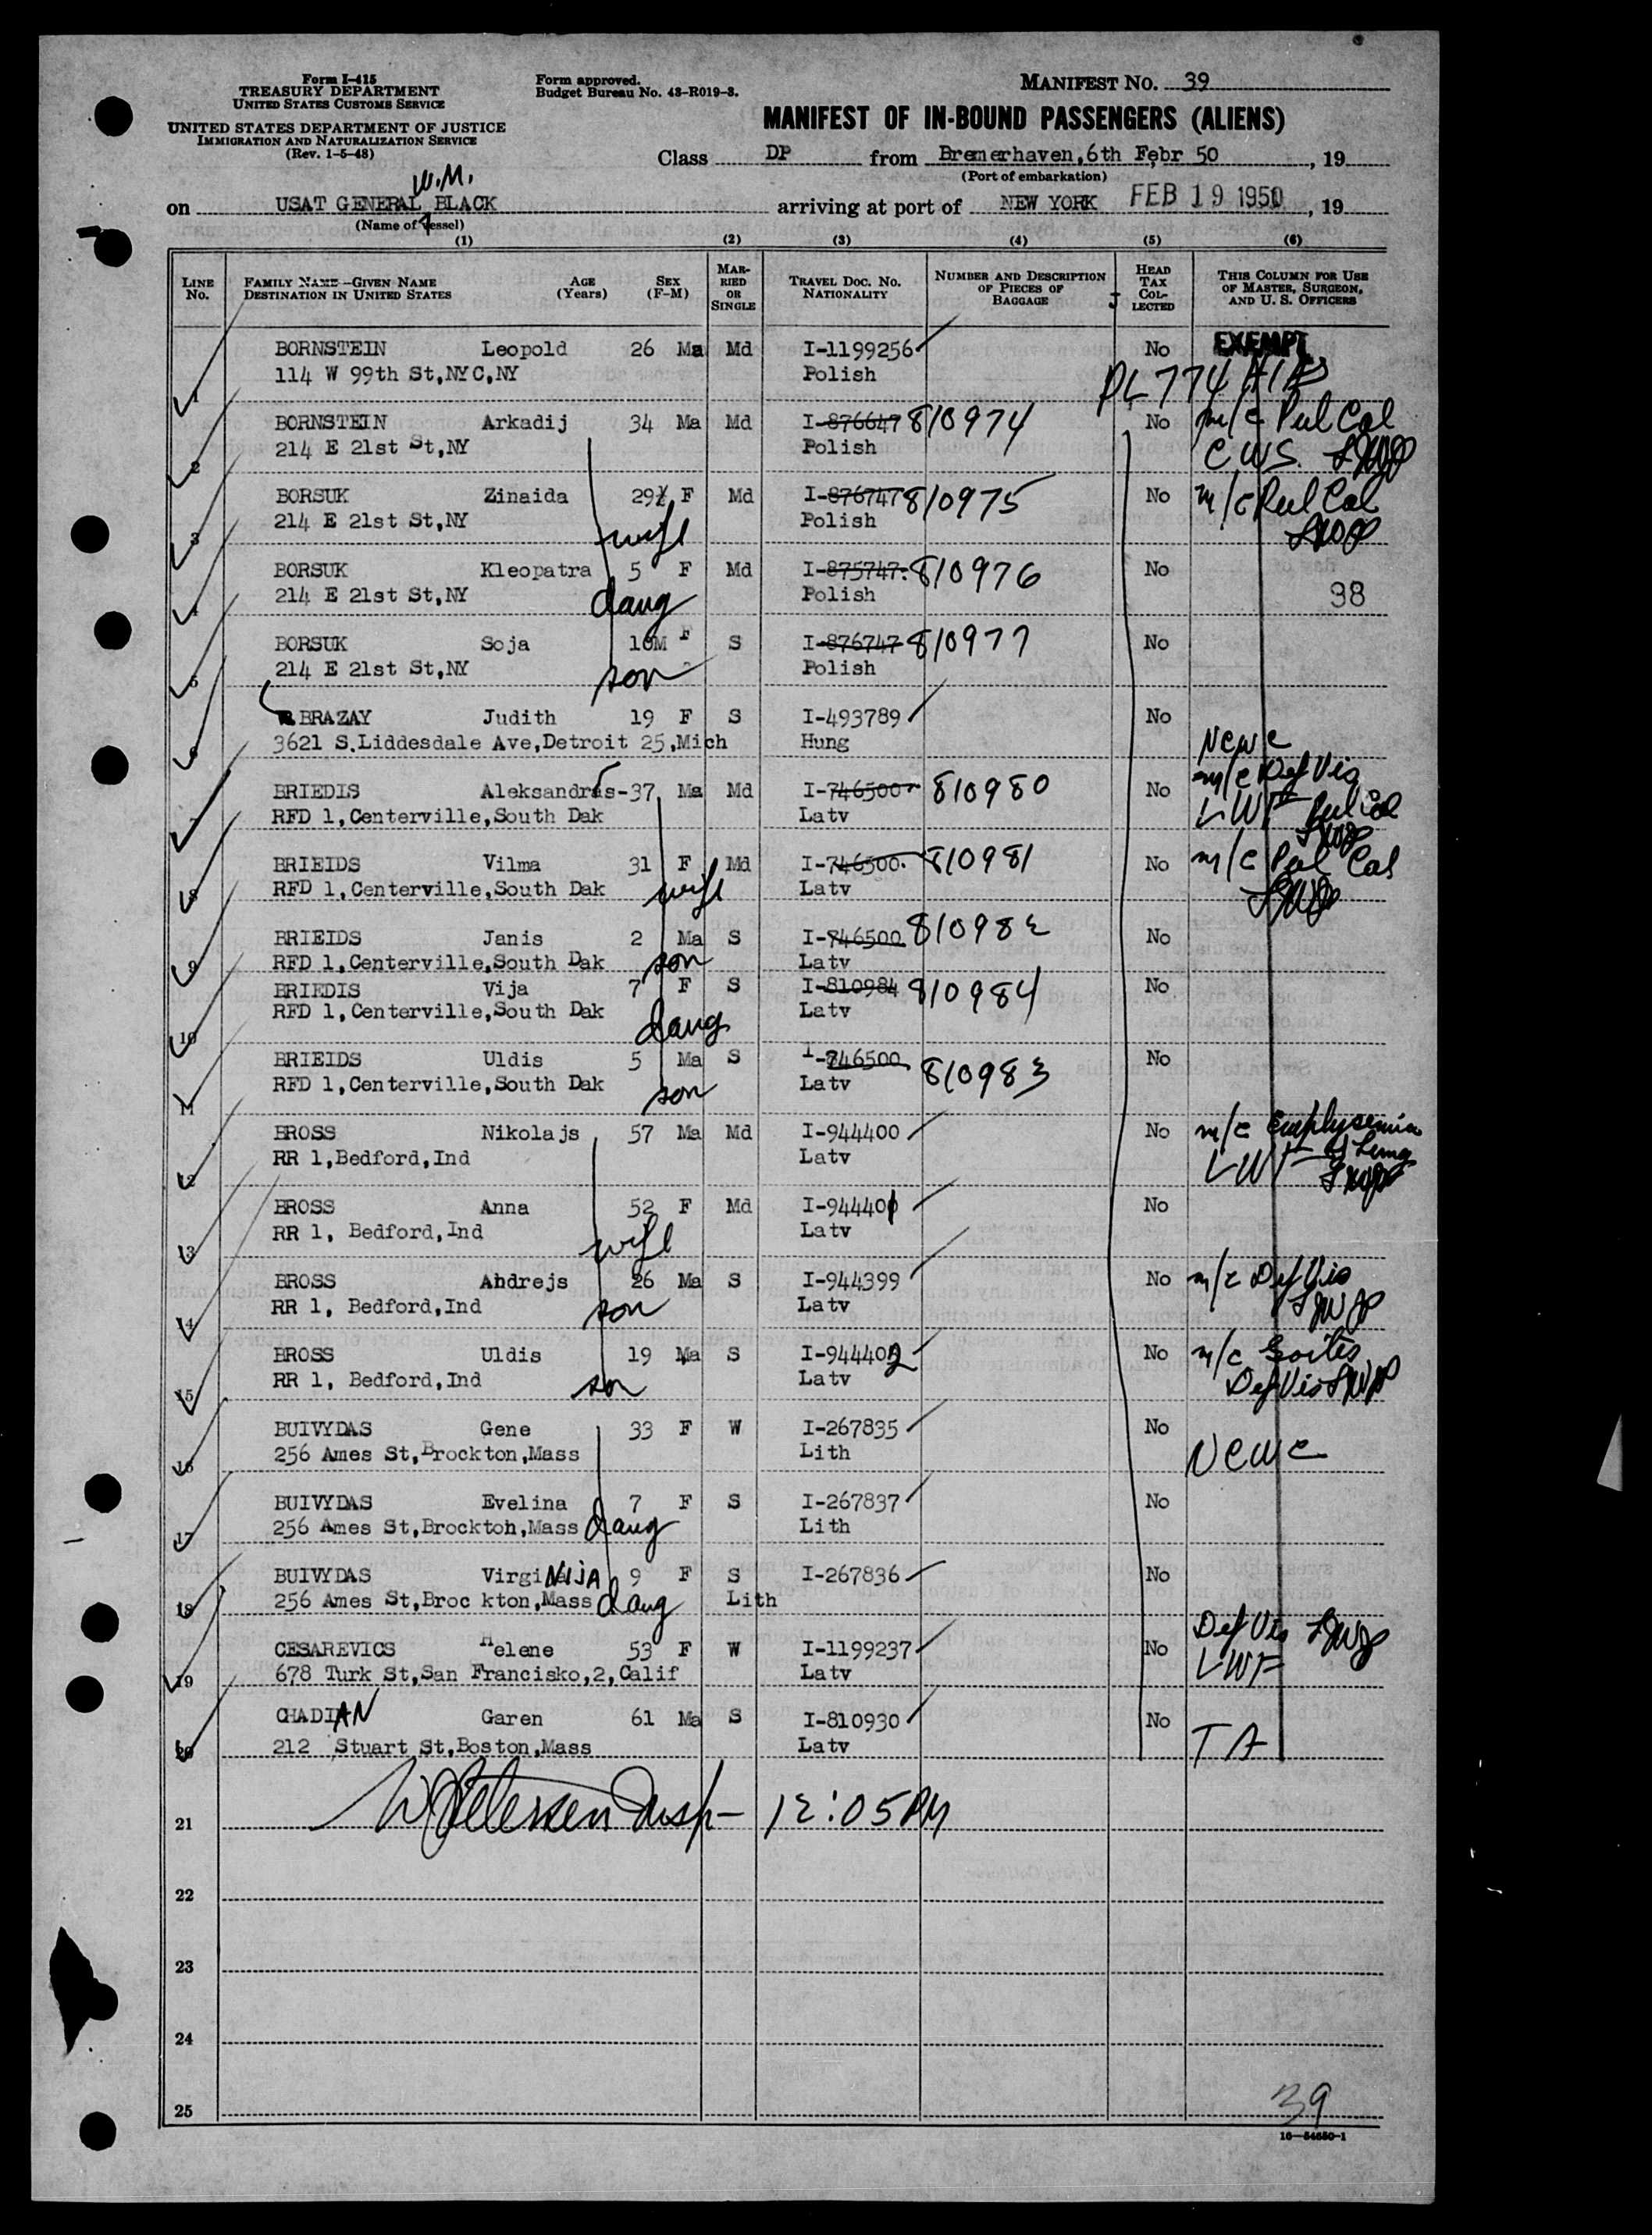 Form I-415
TREASURY DEPARTMENT
UNITED STATES CUSTOMS SERVICE
UNITED STATES DEPARTMENT OF JUSTICE
IMMIGRATION AND NATURALIZATION SERVICE
(Rev. 1-5-48)
Form approved.
Budget Bureau No. 43-R019-3.
MANIFEST NO. 39
MANIFEST OF IN-BOUND PASSENGERS (ALIENS)
Class DP from Bremerhaven,6th Febr 50, 19
(Port of embarkation)
W.M.
on USAT GENERAL BLACK arriving at port of NEW YORK FEB 19 1950, 19
(Name of vessel)
(1) (2) (3) (4) (5) (6)
LINE No. FAMILY NAME—GIVEN NAME DESTINATION IN UNITED STATES AGE (Years) SEX (F-M) MARRIED OR SINGLE TRAVEL DOC. NO. NATIONALITY NUMBER AND DESCRIPTION OF PIECES OF BAGGAGE HEAD TAX COLLECTED THIS COLUMN FOR USE OF MASTER, SURGEON, AND U. S. OFFICERS
BORNSTEIN Leopold 26 Ma Md I-1199256 No EXEMPT
1 114 W 99th St,NYC,NY Polish PL 774 HIAS
BORNSTEIN Arkadij 34 Ma Md I-876647 810974 No m/c Pul Cal
2 214 E 21st St,NY Polish CWS.
BORSUK Zinaida 29 F Md I-876747 810975 No m/c Pul Cal
3 214 E 21st St,NY wife Polish
BORSUK Kleopatra 5 F Md I-875747. 810976 No
4 214 E 21st St,NY daug Polish 98
BORSUK Soja 10M F S I-876747 810977 No
5 214 E 21st St,NY son Polish
BRAZAY Judith 19 F S I-493789 No
6 3621 S.Liddesdale Ave,Detroit 25,Mich Hung NCWC
BRIEDIS Aleksandrs-37 Ma Md I-746500 810980 No m/c Def Vis
7 RFD 1,Centerville,South Dak Latv LWF Pul Cal
BRIEIDS Vilma 31 F Md I-746500. 810981 No m/c Pul Cal
8 RFD 1,Centerville,South Dak wife Latv
BRIEIDS Janis 2 Ma S I-746500 810982 No
9 RFD 1,Centerville,South Dak son Latv
BRIEDIS Vija 7 F S I-810984 810984 No
10 RFD 1,Centerville,South Dak daug Latv
BRIEIDS Uldis 5 Ma S I-746500 810983 No
11 RFD 1,Centerville,South Dak son Latv
BROSS Nikolajs 57 Ma Md I-944400 No m/c Emphysemia
12 RR 1,Bedford,Ind Latv LWF of Lung
BROSS Anna 52 F Md I-944401 No
13 RR 1, Bedford,Ind wife Latv
BROSS Ahdrejs 26 Ma S I-944399 No m/c Def Vis
14 RR 1, Bedford,Ind son Latv
BROSS Uldis 19 Ma S I-944402 No m/c Goites
15 RR 1, Bedford,Ind son Latv Def Vis
BUIVYDAS Gene 33 F W I-267835 No
16 256 Ames St,Brockton,Mass Lith NCWC
BUIVYDAS Evelina 7 F S I-267837 No
17 256 Ames St,Brocktoh,Mass daug Lith
BUIVYDAS VirgiNIJA 9 F S I-267836 No
18 256 Ames St,Broc kton,Mass daug Lith
CESAREVICS Helene 53 F W I-1199237 No Def Vis
19 678 Turk St,San Francisko,2,Calif Latv LWF
CHADIAN Garen 61 Ma S I-810930 No
20 212 Stuart St,Boston,Mass Latv TA
21 W Petersen Insp- 12:05 PM
22
23
24
25
39
16—54650-1